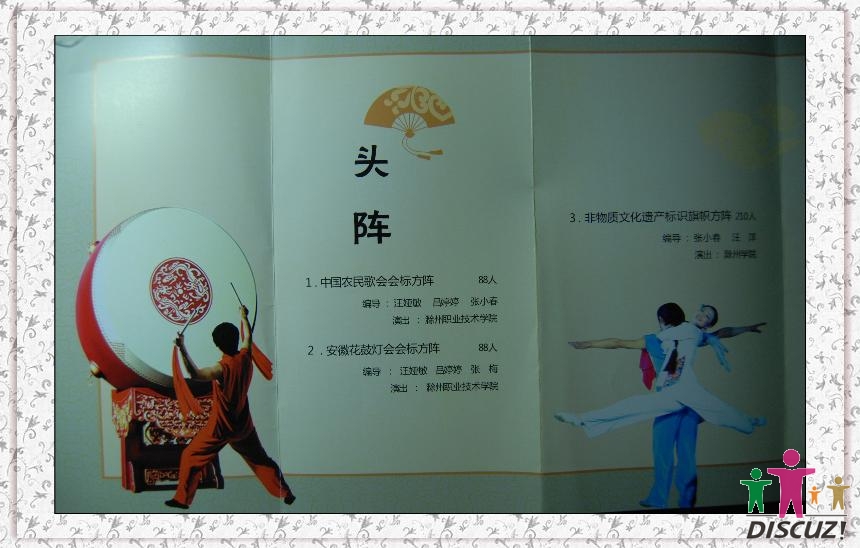 头
阵
1.中国农民歌会会标方阵 88人
编导：汪娅敏 吕婷婷 张小春
演出：滁州职业技术学院
2.安徽花鼓灯会会标方阵 88人
编导：汪娅敏 吕婷婷 张 梅
演出：滁州职业技术学院
3.非物质文化遗产标识旗帜方阵 210人
编导：张小春 汪 萍
演出：滁州学院
DISCUZ!